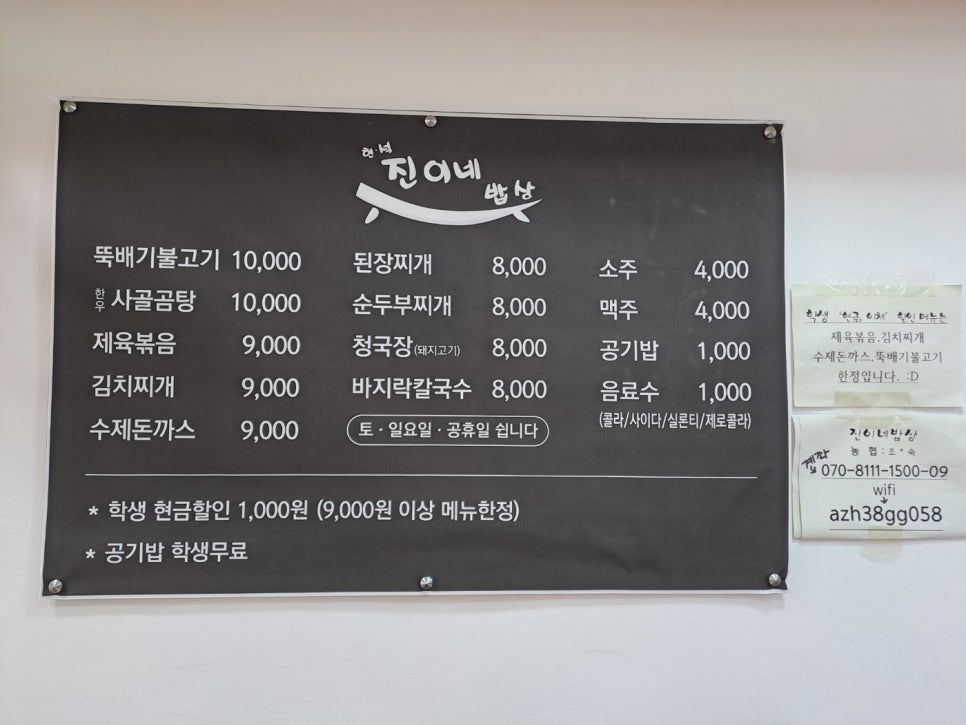 현·석
진이네
밥상
뚝배기불고기 10,000
한우 사골곰탕 10,000
제육볶음 9,000
김치찌개 9,000
수제돈까스 9,000
된장찌개 8,000
순두부찌개 8,000
청국장(돼지고기) 8,000
바지락칼국수 8,000
토·일요일·공휴일 쉽니다
소주 4,000
맥주 4,000
공기밥 1,000
음료수 1,000
(콜라/사이다/실론티/제로콜라)
* 학생 현금할인 1,000원 (9,000원 이상 메뉴한정)
* 공기밥 학생무료
학생 '현금, 이체' 할인 메뉴는
제육볶음,김치찌개
수제돈까스,뚝배기불고기
한정입니다. :D
진이네밥상
농협:조*숙
계좌
070-8111-1500-09
wifi
azh38gg058